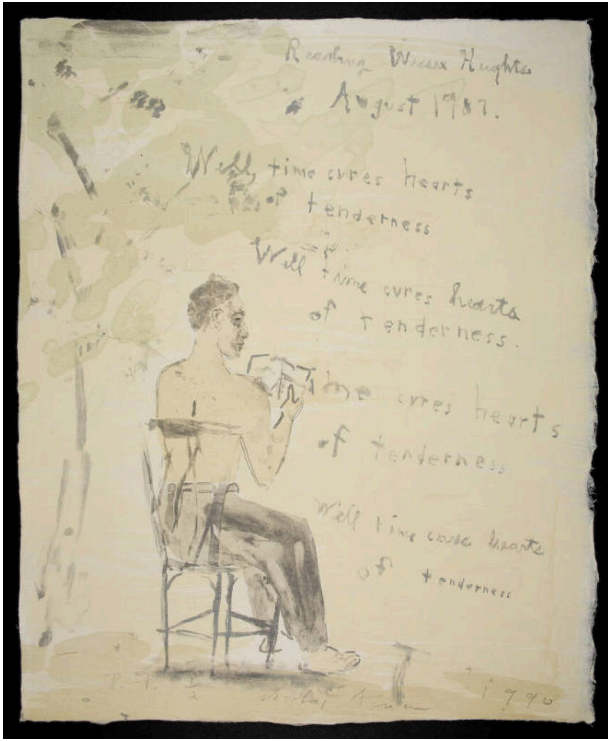 Reading Wessex Heights
August 1987.
Well, time cures hearts
of tenderness
Well time cures hearts
of tenderness.
time cures hearts
of tenderness
Well time cures hearts
of tenderness
1990